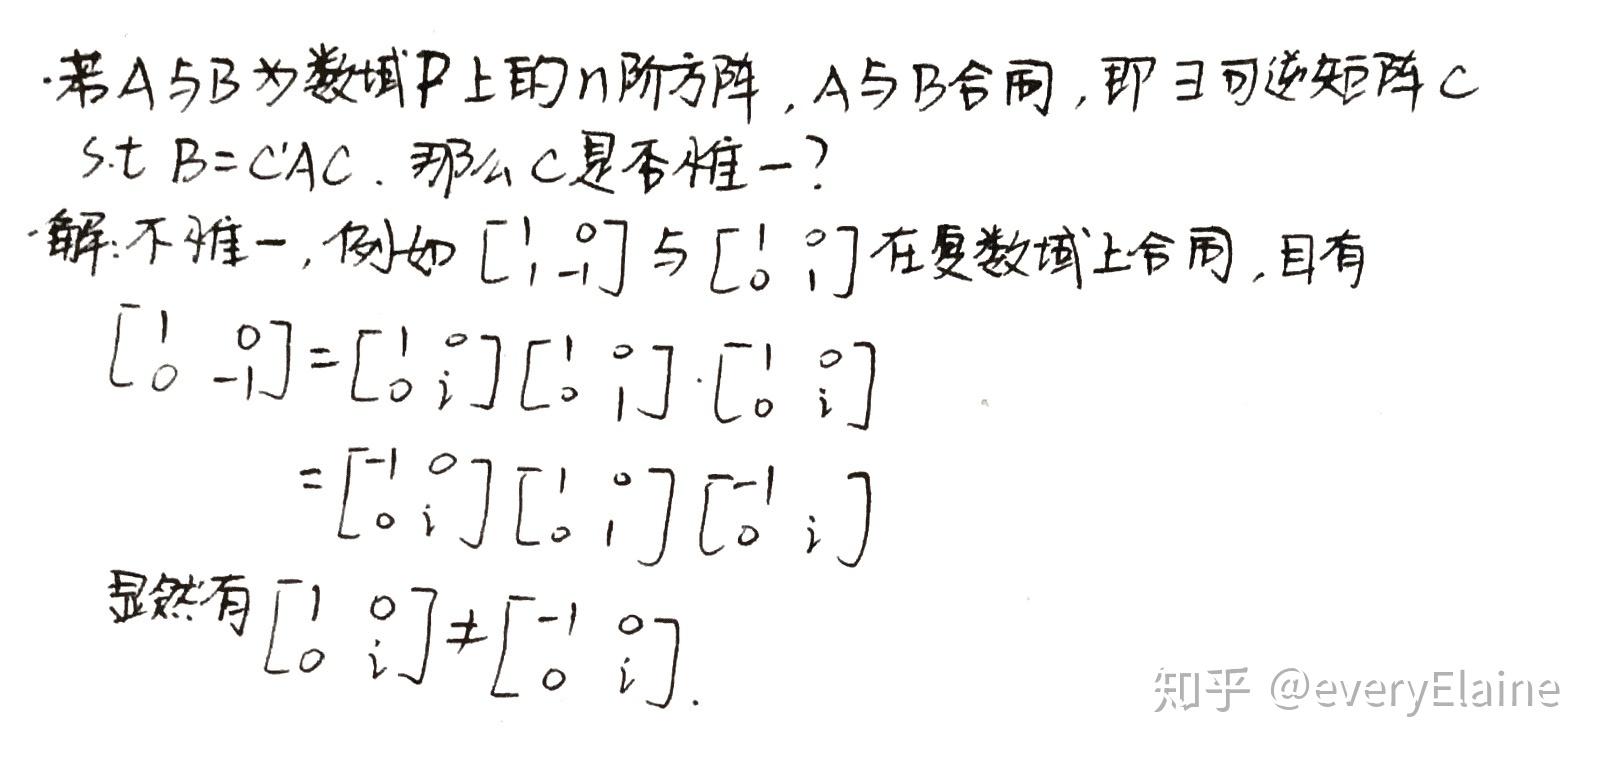 ·若A与B为数域P上的n阶方阵,A与B合同,即∃可逆矩阵C
s.t B=C'AC. 那么C是否惟一?
·解:不惟一,例如 [1 0; 1 -1] 与 [1 0; 0 1] 在复数域上合同,且有
[1 0; 0 -1] = [1 0; 0 i] [1 0; 0 1] · [1 0; 0 i]
= [-1 0; 0 i] [1 0; 0 1] [-1; 0 i]
显然有 [1 0; 0 i] ≠ [-1 0; 0 i].
知乎 @everyElaine